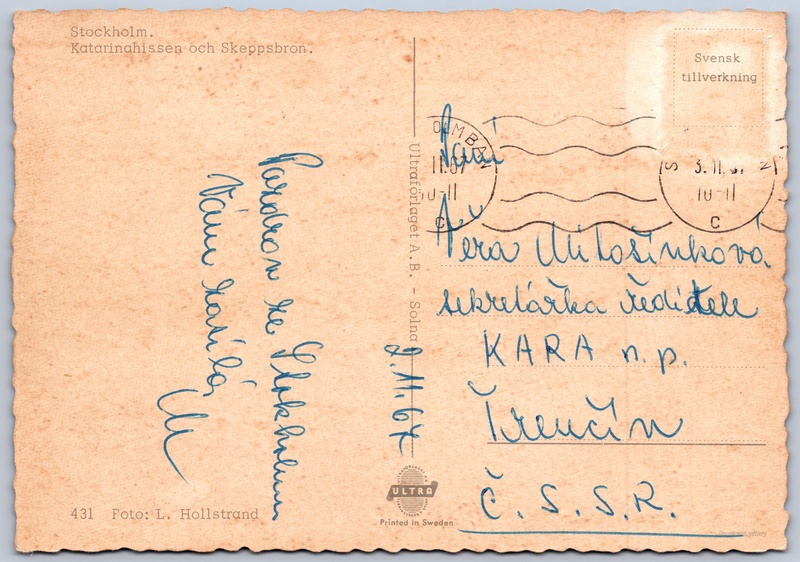 Stockholm.
Katarinahissen och Skeppsbron.
Pozdrav ze Stokholmu
Vám zasílá
2.11.67
431 Foto: L. Hollstrand
Ultraförlaget A.B. - Solna
ULTRA
Printed in Sweden
Svensk
tillverkning
3.11.67
10-11
C
10-11
C
Paní
Věra Mitošinková
sekretářka ředitele
KARA n.p.
Trenčín
Č.S.S.R.